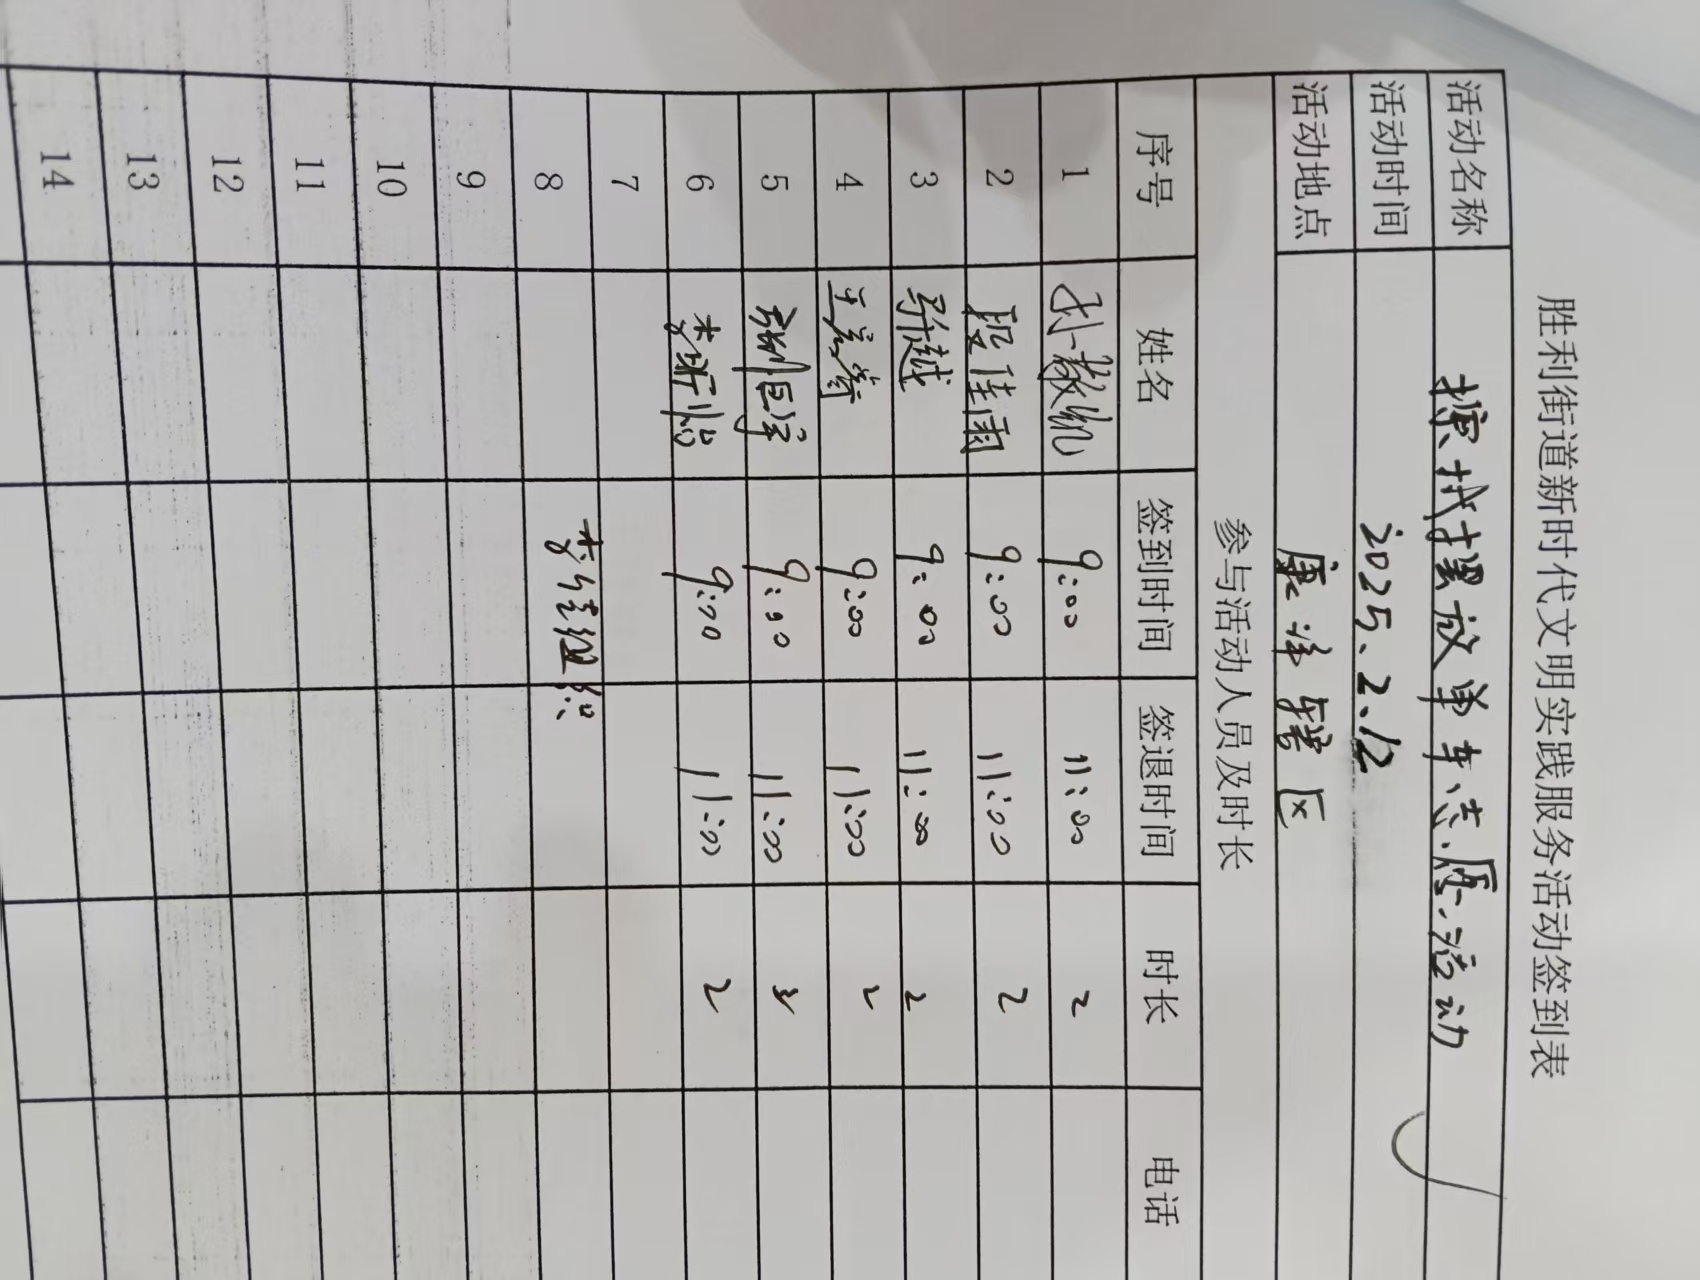 胜利街道新时代文明实践服务活动签到表
活动名称 擦拭摆放单车志愿活动
活动时间 2025.2.12
活动地点 康泽辖区
参与活动人员及时长
序号 姓名 签到时间 签退时间 时长 电话
1 孙毅凯 9:00 11:00 2
2 段佳雨 9:00 11:00 2
3 乔越 9:00 11:00 2
4 9:00 11:00 2
5 9:00 11:00 2
6 李昕怡 9:00 11:00 2
7
8 李佳组织
9
10
11
12
13
14